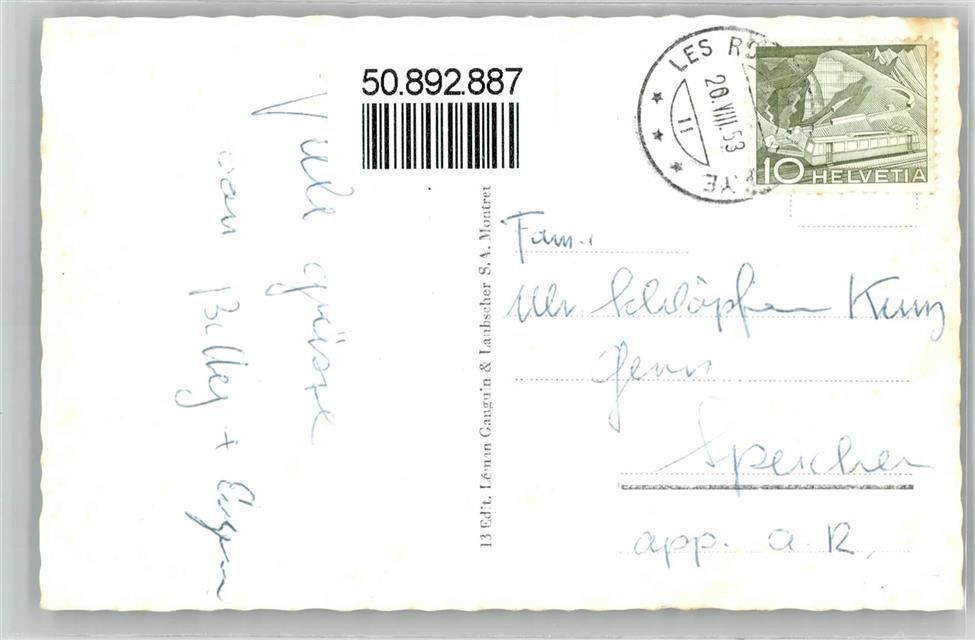 50.892.887
LES RO
YE
20.VIII.53
11
10 HELVETIA
13 Edit. Léman Ganguin & Laubscher S.A. Montreux
Viele grüsse
von Billy + Eugen
Fam.
Ulr. Schläpfer Kunz
Speicher
app. a. R.